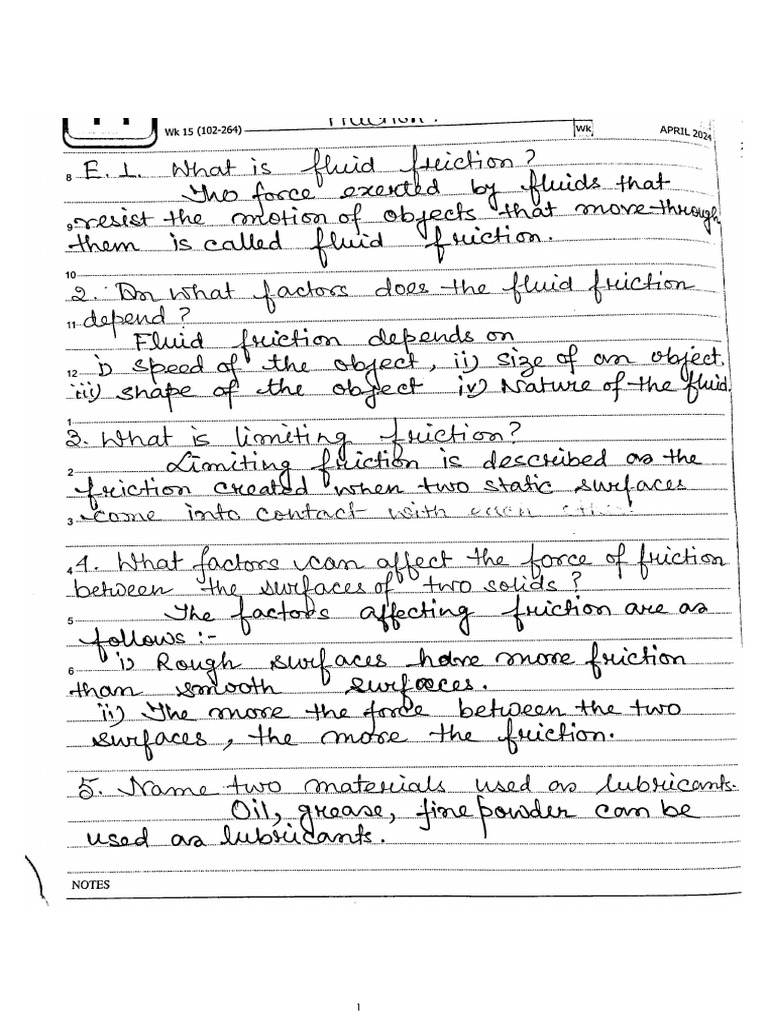 Wk 15 (102-264)
Wk
APRIL 2024
8 E. 1. What is fluid friction?
The force exerted by fluids that
9 resist the motion of objects that move through
them is called fluid friction.
10
2. On what factors does the fluid friction
11 depend?
Fluid friction depends on
12 i) speed of the object, ii) size of an object.
iii) shape of the object iv) Nature of the fluid.
1
3. What is limiting friction?
2 Limiting friction is described as the
friction created when two static surfaces
3 come into contact with each other.
4 4. What factors can affect the force of friction
between the surfaces of two solids?
5 The factors affecting friction are as
follows :-
6 i) Rough surfaces have more friction
than smooth surfaces.
ii) The more the force between the two
surfaces, the more the friction.
5. Name two materials used as lubricants.
Oil, grease, fine powder can be
used as lubricants.
NOTES
1